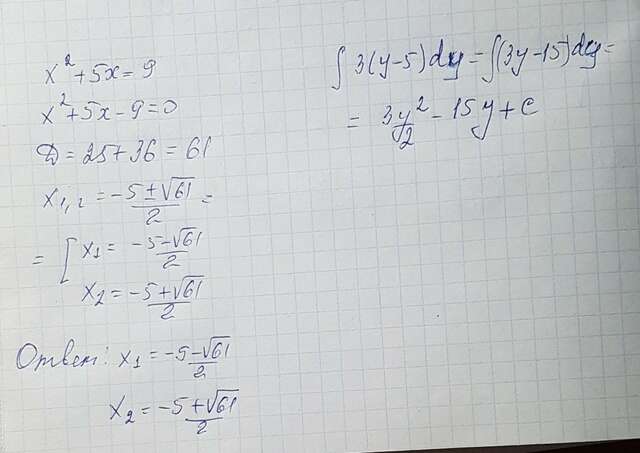 x² + 5x = 9
x² + 5x - 9 = 0
D = 25 + 36 = 61
x₁,₂ = (-5 ± √61)/2 =
= [ x₁ = (-5 - √61)/2
x₂ = (-5 + √61)/2
Ответ: x₁ = (-5 - √61)/2
x₂ = (-5 + √61)/2
∫ 3(y - 5) dy = ∫ (3y - 15) dy =
= 3y²/2 - 15y + C